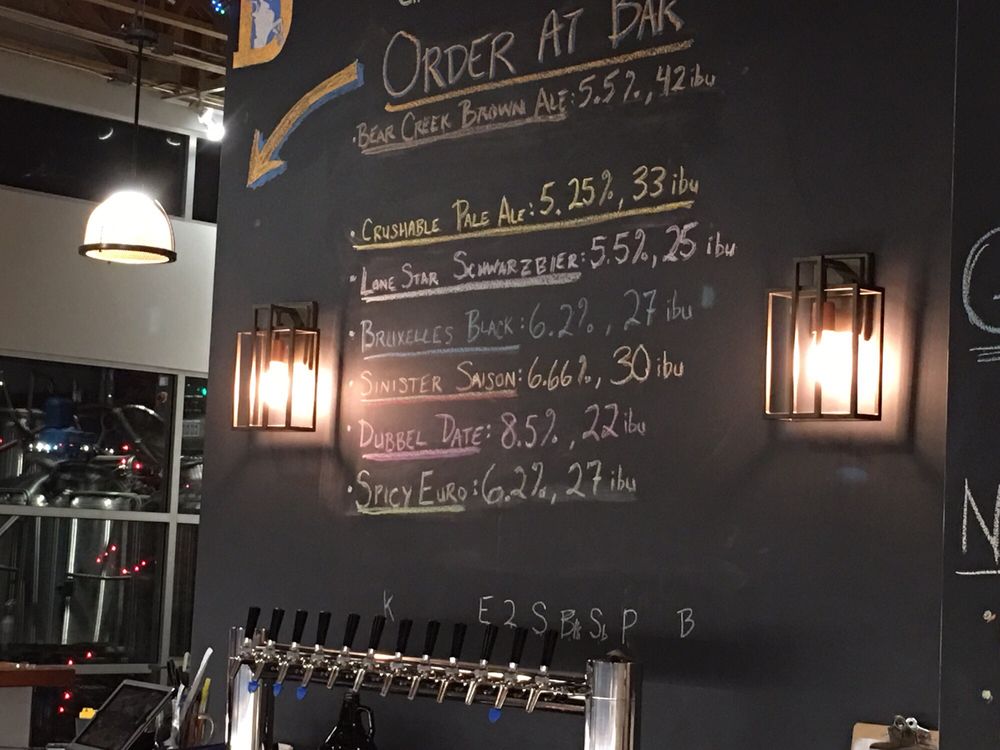 ORDER AT BAR
· BEAR CREEK BROWN ALE: 5.5%, 42 ibu
· CRUSHABLE PALE ALE: 5.25%, 33 ibu
· LONE STAR SCHWARZBIER: 5.5%, 25 ibu
· BRUXELLES BLACK: 6.2%, 27 ibu
· SINISTER SAISON: 6.66%, 30 ibu
· DUBBEL DATE: 8.5%, 22 ibu
· SPICY EURO: 6.2%, 27 ibu
K E 2 S P B